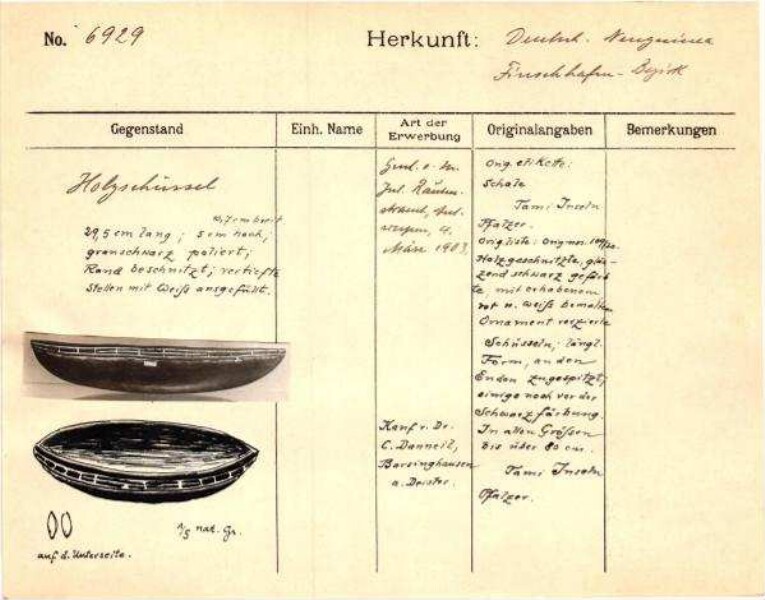 No. 6929
Herkunft: Deutsch. Neuguinea
Finschhafen-Bezirk
Gegenstand
Einh. Name
Art der
Erwerbung
Originalangaben
Bemerkungen
Holzschüssel
29,5 cm lang; 5 cm hoch;
grauschwarz poliert;
Rand beschnitzt; vertiefte
Stellen mit Weiß ausgefüllt.
auf d. Unterseite.
1/5 nat. Gr.
4.
März 1903.
Kauf v. Dr.
C. Danneil,
Barsinghausen
a. Deister.
Orig. etikette:
Schale
Tami Inseln
Pfalzer.
Orig liste:
Holzgeschnitzte, glän-
zend schwarz gefärb
te mit erhabenem
rot u. weiß bemalten
Ornament verzierte
Schüsseln, längl.
Form, an den
Enden zugespitzt;
einige noch vor der
Schwarzfärbung.
In allen Größen
bis über 80 cm.
Tami Inseln
Pfalzer.